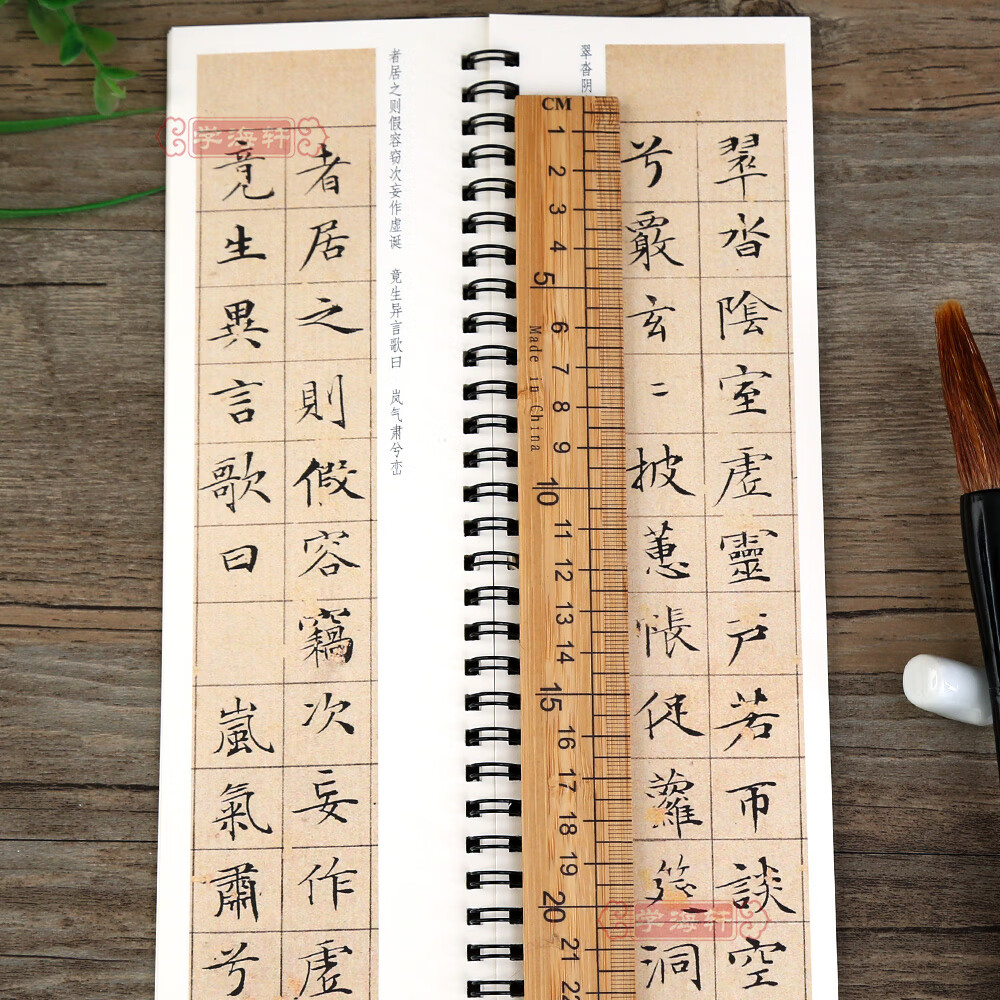 翠沓陰室虛靈戶若帀談空
兮覈玄〻披蕙帳促蘿筵洞
翠沓阴
CM
1
2
3
4
5
6
7
8
9
10
11
12
13
14
15
16
17
18
19
20
21
22
Made in China
者居之则假容窃次妄作虚诞 竟生异言歌曰 岚气肃兮峦
者居之則假容竊次妄作虛
竟生異言歌曰 嵐氣肅兮
学海轩
学海轩